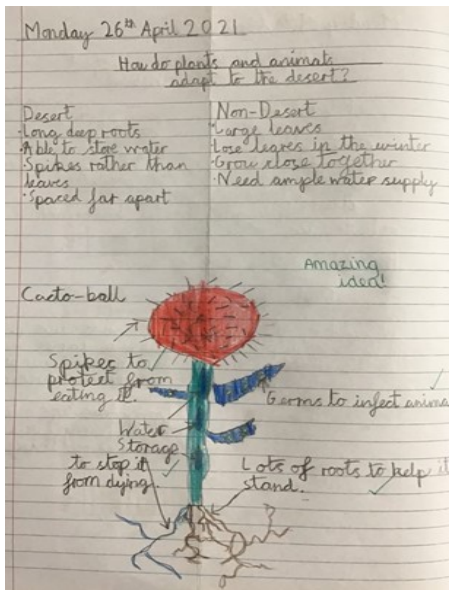 Monday 26th April 2021
How do plants and animals
adapt to the desert?
Desert
·Long deep roots
·Able to store water
·Spikes rather than
leaves
·Spaced far apart
Non-Desert
·Large leaves
·Lose leaves in the winter
·Grow close together
·Need ample water supply
Amazing
idea!
Cacto-ball
Spikes to
protect from
eating it.
Germs to infect
Water
Storage
to stop it
from dying.
Lots of roots to help it
stand.